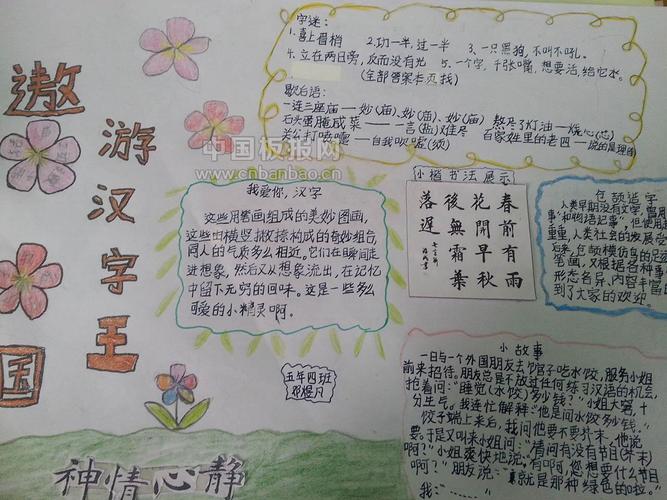 遨
游
汉
字
王
国
字迷：
1.喜上眉梢 2.功一半，过一半 3、一只黑狗，不叫不吼。
4.立在两日旁，反而没有光 5.一个字，千张嘴，想要活，给它水。
（全部答案本页找）
歇后语：
一连三座庙——妙（庙）、妙（庙）、妙（庙） 熬尽了灯油——烧心（芯）
石头蛋腌咸菜——一言（盐）难尽 百家姓里的老四——说的是理由
关公打喷嚏——自我吹嘘（须）
中国板报网
www.cnbanbao.cn
我爱你，汉字
这些用笔画组成的美妙图画，
这些由横竖撇捺构成的奇妙组合，
同人的气质多么相近。它们在瞬间走
进想象，然后又从想象流出，在记忆
中留下无穷的回味。这是一些多么
可爱的小精灵啊。
小楷书法展示
春前有雨
花開早秋
後無霜葉
落遲
仓颉造字
人类早期没有文字，曾用
事"和物语记事"，但使用
重重，人类社会的发展
后来，仓颉模仿鸟的足迹
笔画，又根据各种事
形态各异、内容丰富的
到了大家的欢迎
五年四班
小故事
一日与一个外国朋友去馆子吃水饺，服务小姐
前来招待。朋友总是不放过任何练习汉语的机会，
抢着问："睡觉（水饺）多少钱？"小姐大窘，十
分生气。我连忙解释"他是问水饺多少钱。"
饺子端上来后，我问他要不要芥末，他说
要。于是又叫来小姐问："请问有没有节目（芥末）
啊？"小姐爽快地说："有啊，您想要什么节目
啊？"朋友说："就是那种绿色的啦。"
我：……
神情心静